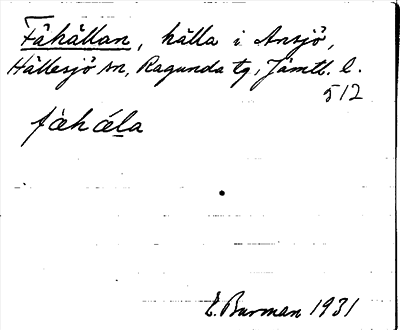 Fåhällan, hälla i Ansjö,
Hällesjö sn, Ragunda tg, Jämtl. l.
512
fàhǽla
E. Burman 1931